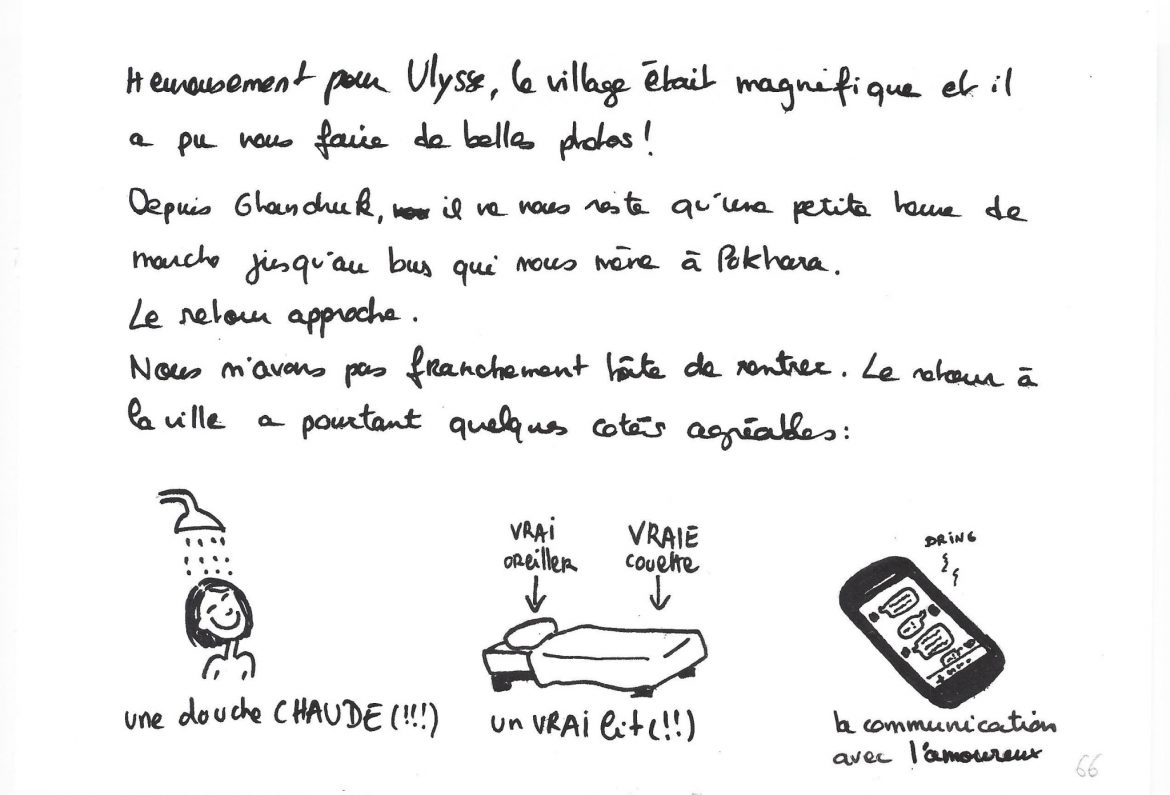 Heureusement pour Ulysse, le village était magnifique et il
a pu nous faire de belles photos !
Depuis Ghandruk, il ne nous reste qu'une petite heure de
marche jusqu'au bus qui nous mène à Pokhara.
Le retour approche.
Nous n'avons pas franchement hâte de rentrer. Le retour à
la ville a pourtant quelques cotés agréables :
VRAI
OREILLER
VRAIE
COUETTE
DRING
une douche CHAUDE (!!!)
un VRAI lit (!!)
la communication
avec l'amoureux
66